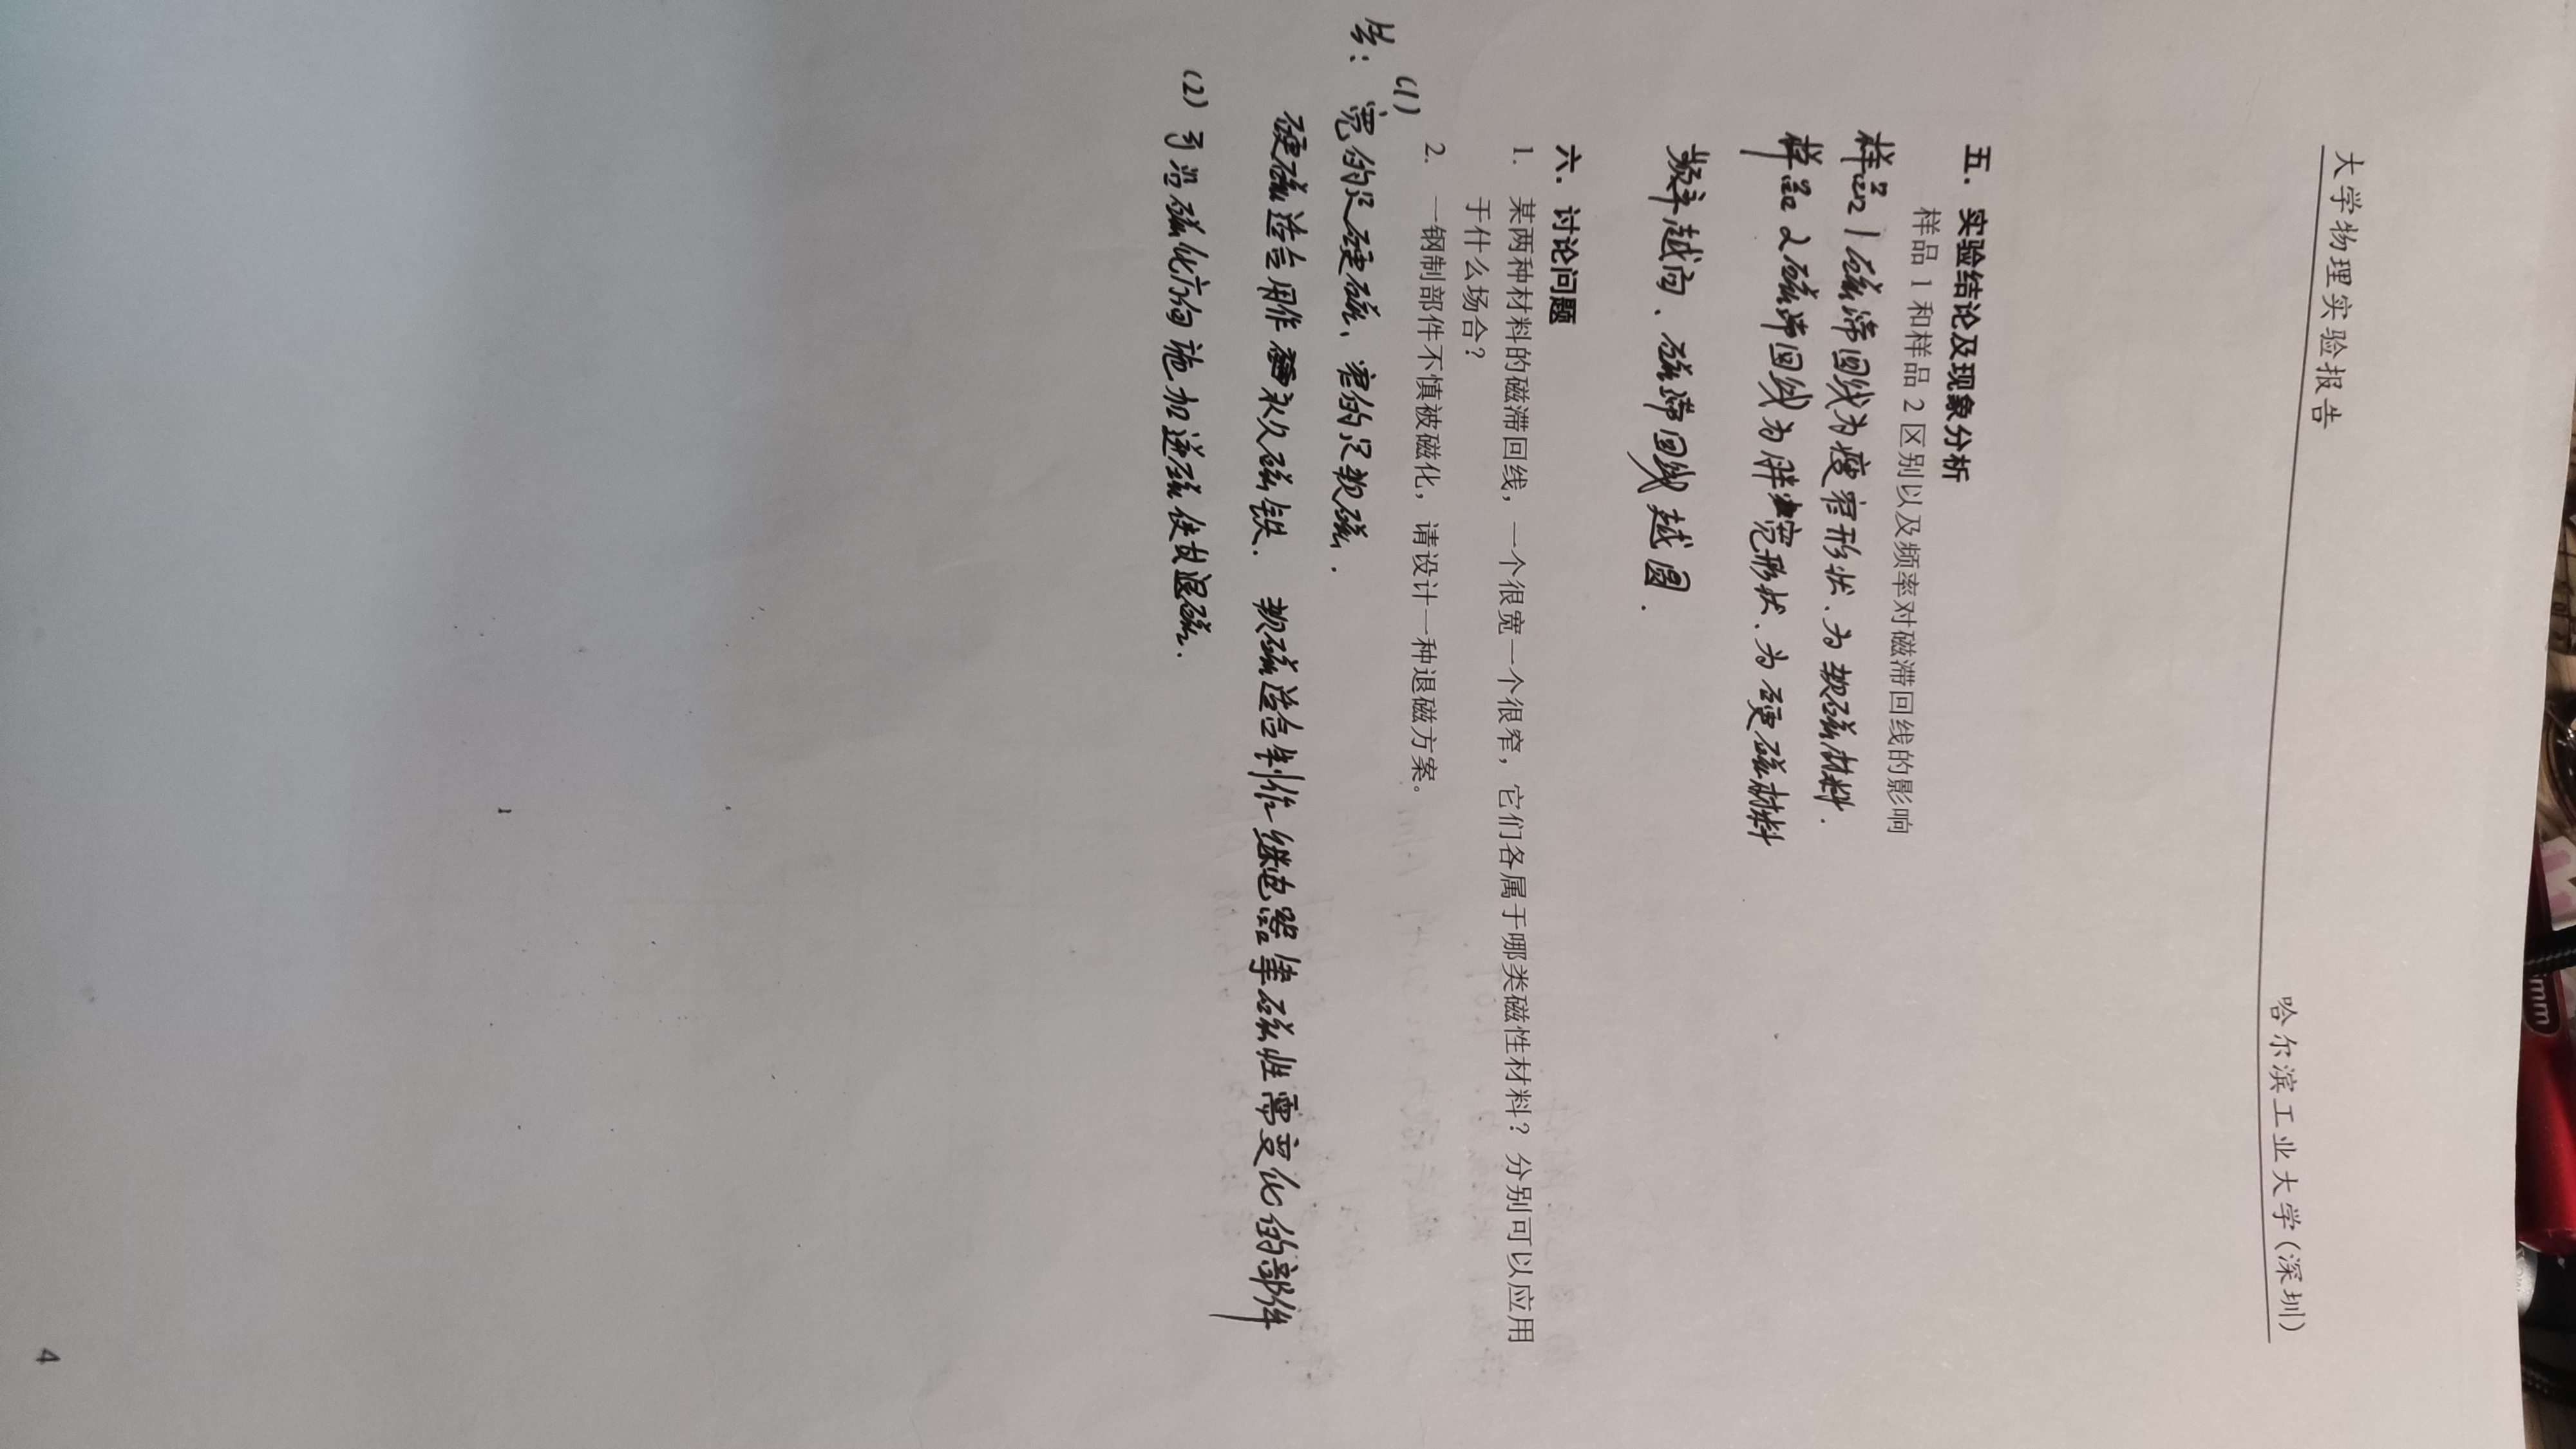 mm
大学物理实验报告
哈尔滨工业大学(深圳)
五. 实验结论及现象分析
样品 1 和样品 2 区别以及频率对磁滞回线的影响
样品1磁滞回线为瘦窄形状、为软磁材料.
样品2磁滞回线为胖宽形状、为硬磁材料
频率越高、磁滞回线越圆.
六. 讨论问题
1. 某两种材料的磁滞回线，一个很宽一个很窄，它们各属于哪类磁性材料？分别可以应用
于什么场合？
2. 一钢制部件不慎被磁化，请设计一种退磁方案。
(1)
答: 宽的是硬磁、窄的是软磁.
硬磁适合用作永久磁铁. 软磁适合制作继电器等磁性需变化的部件
(2) 可沿磁化方向施加逆磁使其退磁.
4